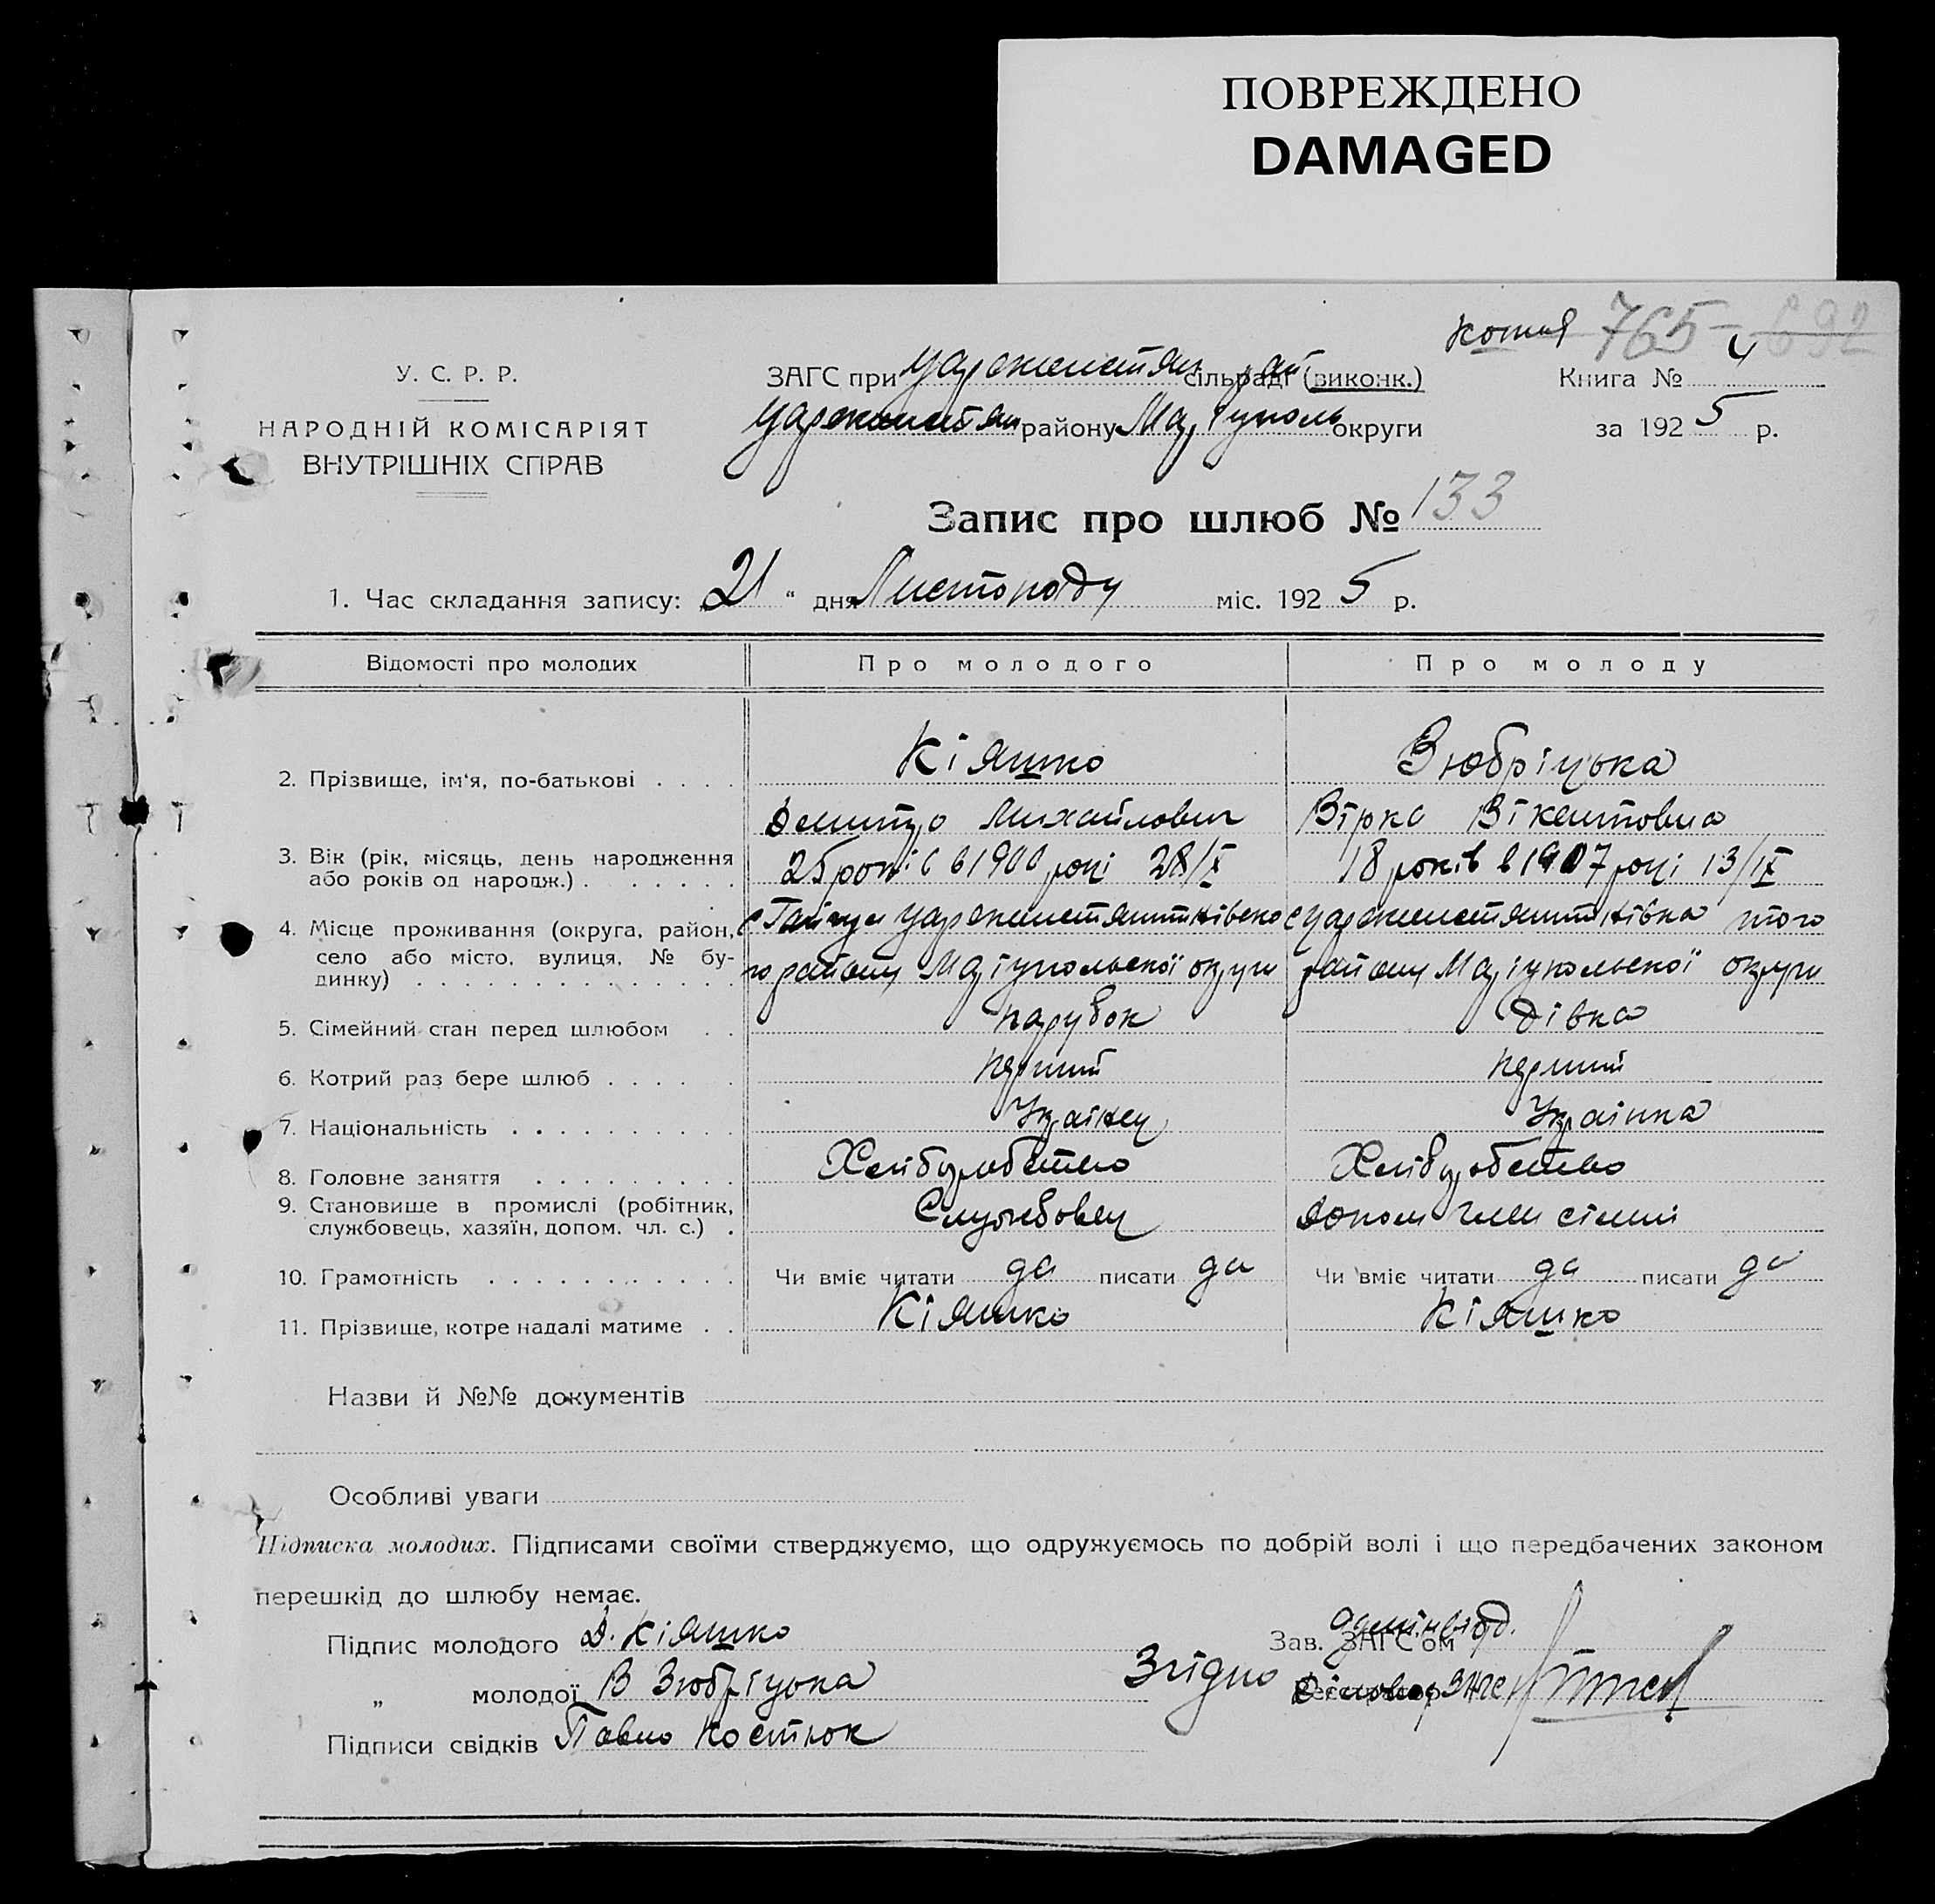 ПОВРЕЖДЕНО
DAMAGED
копия 765 692
У. С. Р. Р.
НАРОДНІЙ КОМІСАРІЯТ
ВНУТРІШНІХ СПРАВ
ЗАГС при Царекостян рай сільраді (виконк.)
Царекостян району Маріуполь округи
Книга № 4
за 1925 р.
Запис про шлюб № 133
1. Час складання запису: 21 " дня Листопаду міс. 1925 р.
Відомості про молодих Про молодого Про молоду
2. Прізвище, ім'я, по-батькові . . . . Кіяшко Зюбріцька
Дмитро Михайлович Вірка Вікентовна
3. Вік (рік, місяць, день народження
або років од народж.) . . . . . . 25 років в 1900 році 28/X 18 років в 1907 році 13/IX
4. Місце проживання (округа, район, с Гайчул Царекостянтинівсько с Царекостянтинівка того
село або місто, вулиця, № бу-
динку) . . . . . . . . . . . . . го району Маріупольської округи району Маріупольської округи
5. Сімейний стан перед шлюбом . . парубок дівка
6. Котрий раз бере шлюб . . . . . перший перший
7. Національність . . . . . . . . . Українец Українка
8. Головне заняття . . . . . . . . . Хліборобство Хліборобство
9. Становище в промислі (робітник,
службовець, хазяїн, допом. чл. с.) . Службовец допом член сімьи
10. Грамотність . . . . . . . . . . . Чи вміє читати да писати да Чи вміє читати да писати да
11. Прізвище, котре надалі матиме . . Кіяшко Кіяшко
Назви й №№ документів
Особливі уваги
Підписка молодих. Підписами своїми стверджуємо, що одружуємось по добрій волі і що передбачених законом
перешкід до шлюбу немає.
Підпис молодого Д. Кіяшко
Зав. ЗАГС'ом
" молодої В Зюбріцька
Згідно
Підписи свідків Павло Костюк